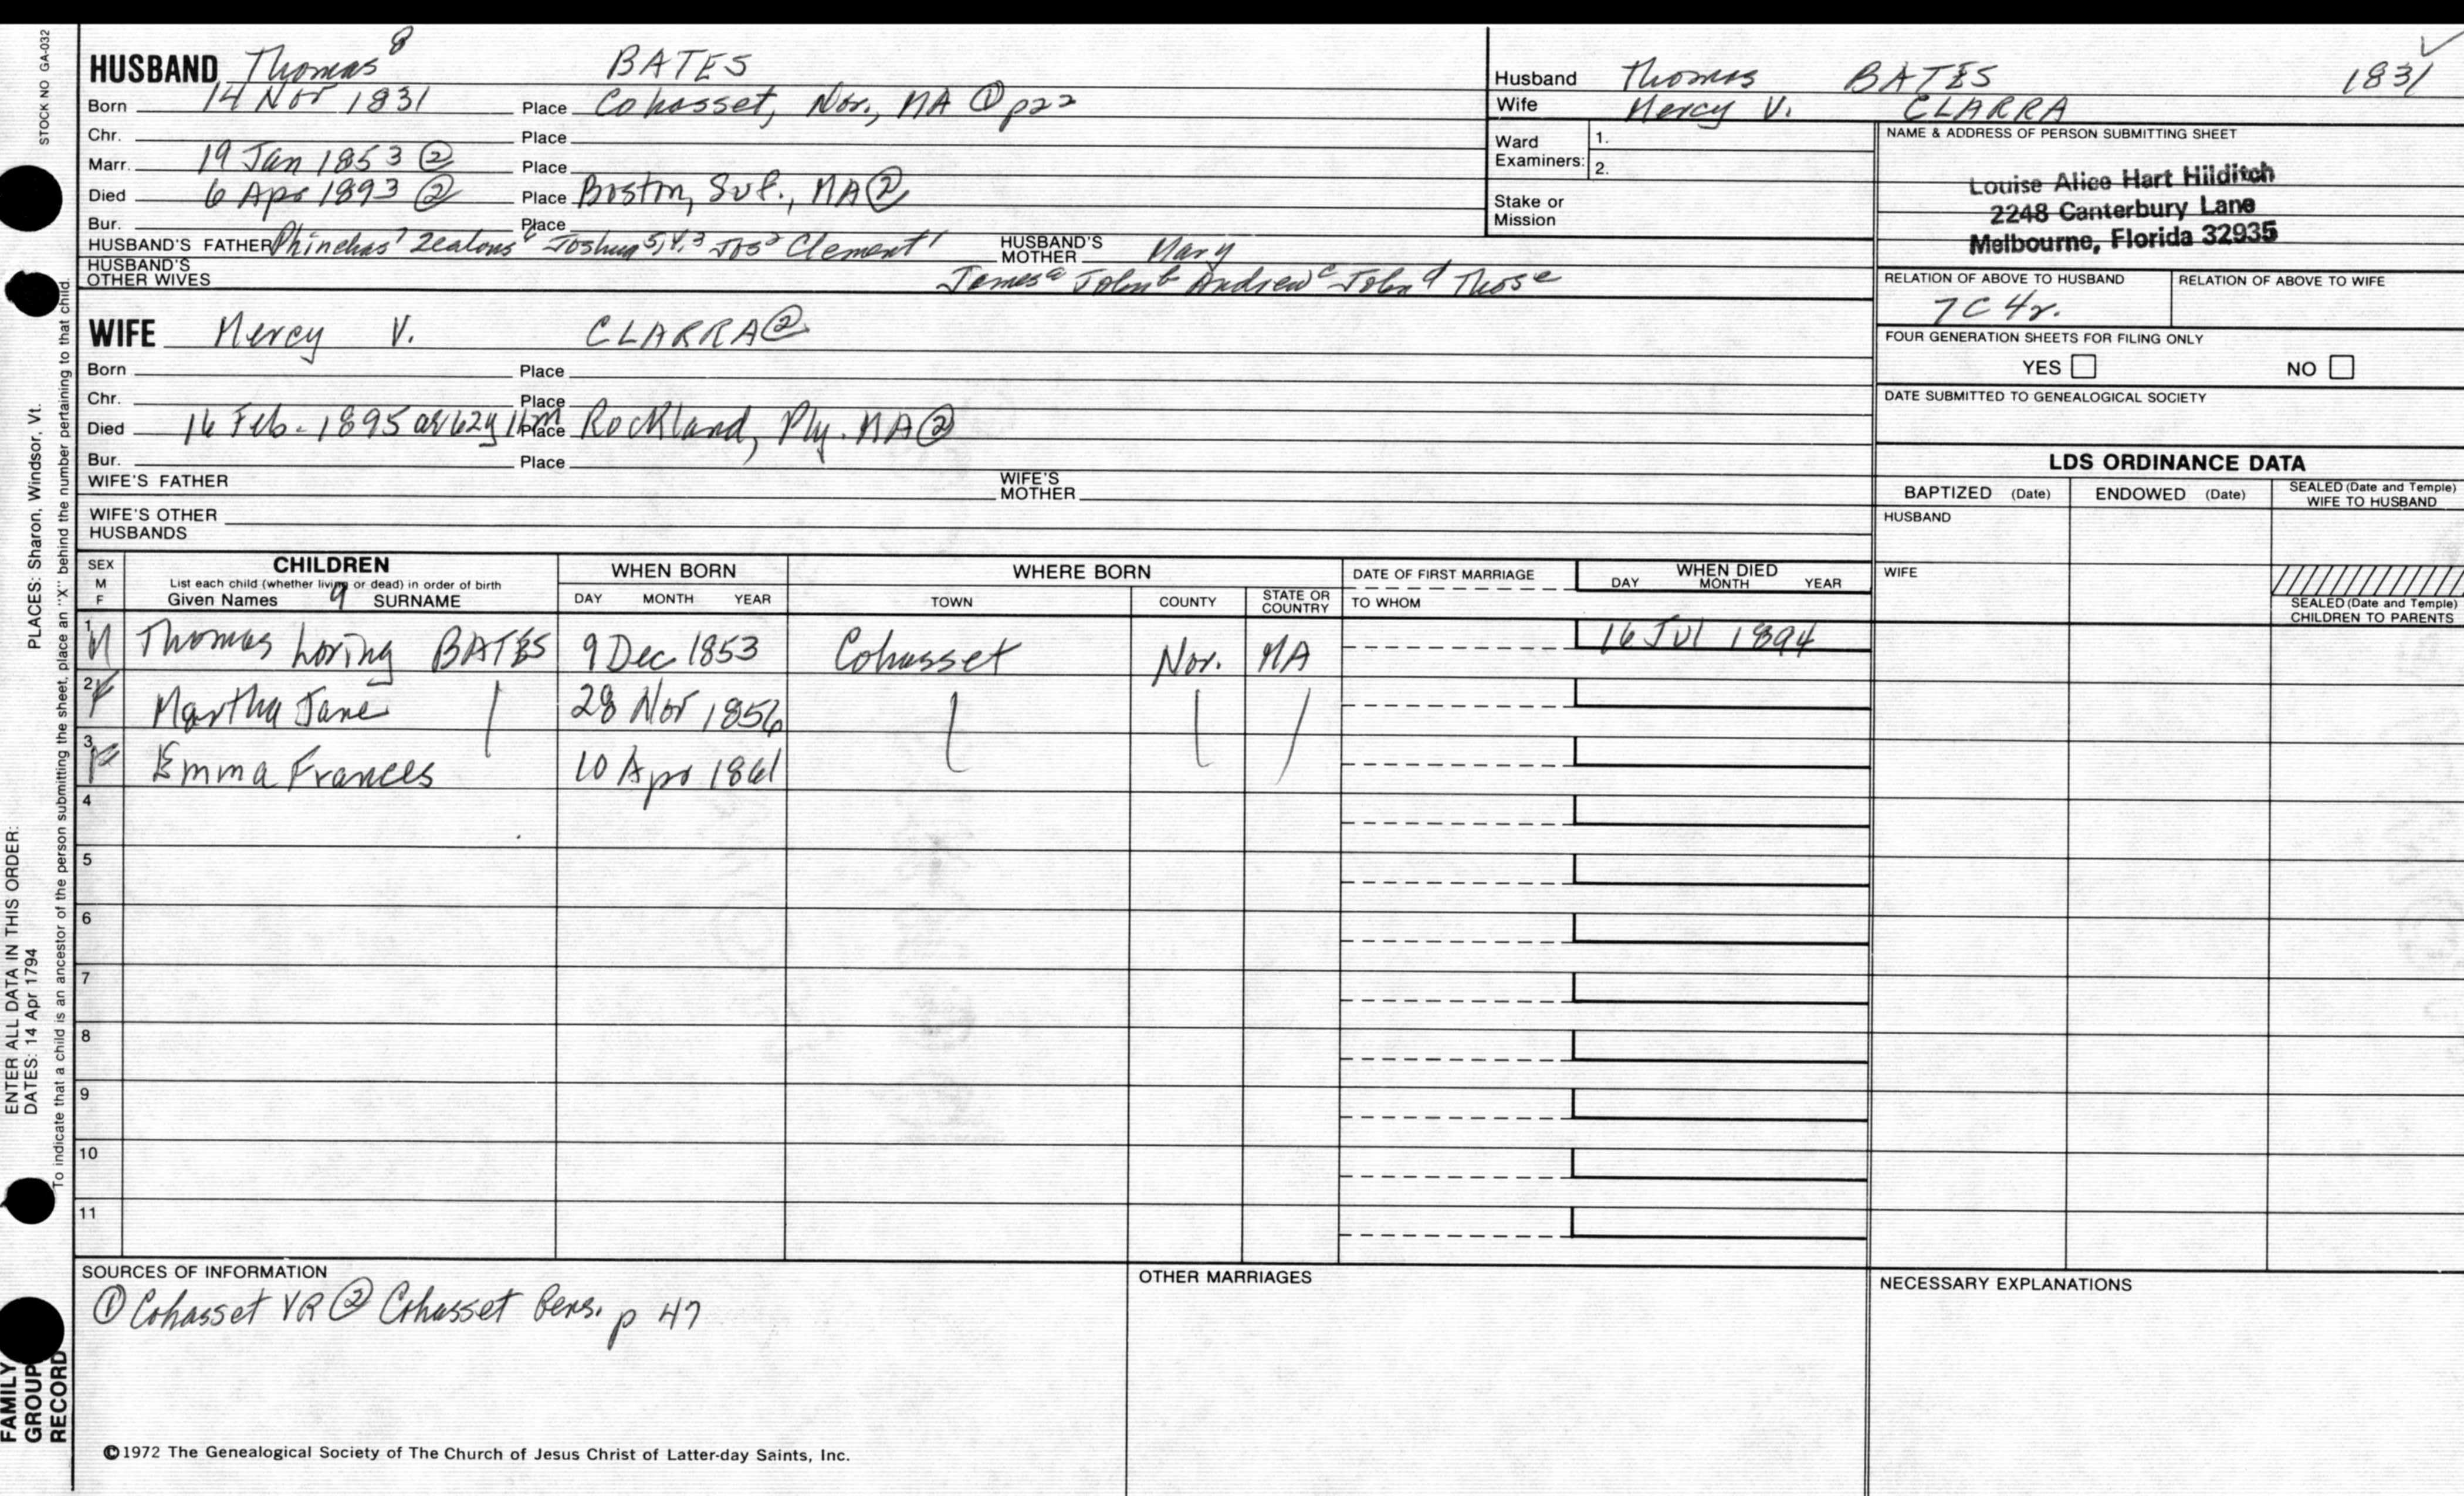 STOCK NO GA-032
PLACES: Sharon, Windsor, Vt.
ENTER ALL DATA IN THIS ORDER:
DATES: 14 Apr 1794
To indicate that a child is an ancestor of the person submitting the sheet, place an "X" behind the number pertaining to that child.
FAMILY
GROUP
RECORD
HUSBAND Thomas 8 BATES
Born 14 Nov 1831 Place Cohasset, Nor., MA ① p22
Chr. Place
Marr. 19 Jan 1853 ② Place
Died 6 Apr 1893 ② Place Boston, Suf., MA ②
Bur. Place
HUSBAND'S FATHER Phinehas 7 Zealous 6 Joshua 5,4,3 Jos 2 Clement 1 HUSBAND'S MOTHER Mary
HUSBAND'S OTHER WIVES James a John b Andrew c John d Thos e
WIFE Mercy V. CLARRA ②
Born Place
Chr. Place
Died 16 Feb - 1895 ae 62y 11m Place Rockland, Ply. MA ②
Bur. Place
WIFE'S FATHER WIFE'S MOTHER
WIFE'S OTHER HUSBANDS
Husband Thomas BATES 1831
Wife Mercy V. CLARRA
Ward Examiners: 1.
2.
Stake or Mission
NAME & ADDRESS OF PERSON SUBMITTING SHEET
Louise Alice Hart Hilditch
2248 Canterbury Lane
Melbourne, Florida 32935
RELATION OF ABOVE TO HUSBAND RELATION OF ABOVE TO WIFE
7C 4r.
FOUR GENERATION SHEETS FOR FILING ONLY
YES NO
DATE SUBMITTED TO GENEALOGICAL SOCIETY
LDS ORDINANCE DATA
BAPTIZED (Date) ENDOWED (Date) SEALED (Date and Temple) WIFE TO HUSBAND
HUSBAND
WIFE
SEALED (Date and Temple) CHILDREN TO PARENTS
SEX M F CHILDREN WHEN BORN WHERE BORN DATE OF FIRST MARRIAGE WHEN DIED
List each child (whether living or dead) in order of birth
Given Names 9 SURNAME DAY MONTH YEAR TOWN COUNTY STATE OR COUNTRY TO WHOM DAY MONTH YEAR
1 M Thomas Loring BATES 9 Dec 1853 Cohasset Nor. MA 16 Jul 1894
2 F Martha Jane 28 Nov 1856
3 F Emma Frances 10 Apr 1861
4
5
6
7
8
9
10
11
SOURCES OF INFORMATION
① Cohasset VR ② Cohasset Gens. p 47
OTHER MARRIAGES
NECESSARY EXPLANATIONS
©1972 The Genealogical Society of The Church of Jesus Christ of Latter-day Saints, Inc.